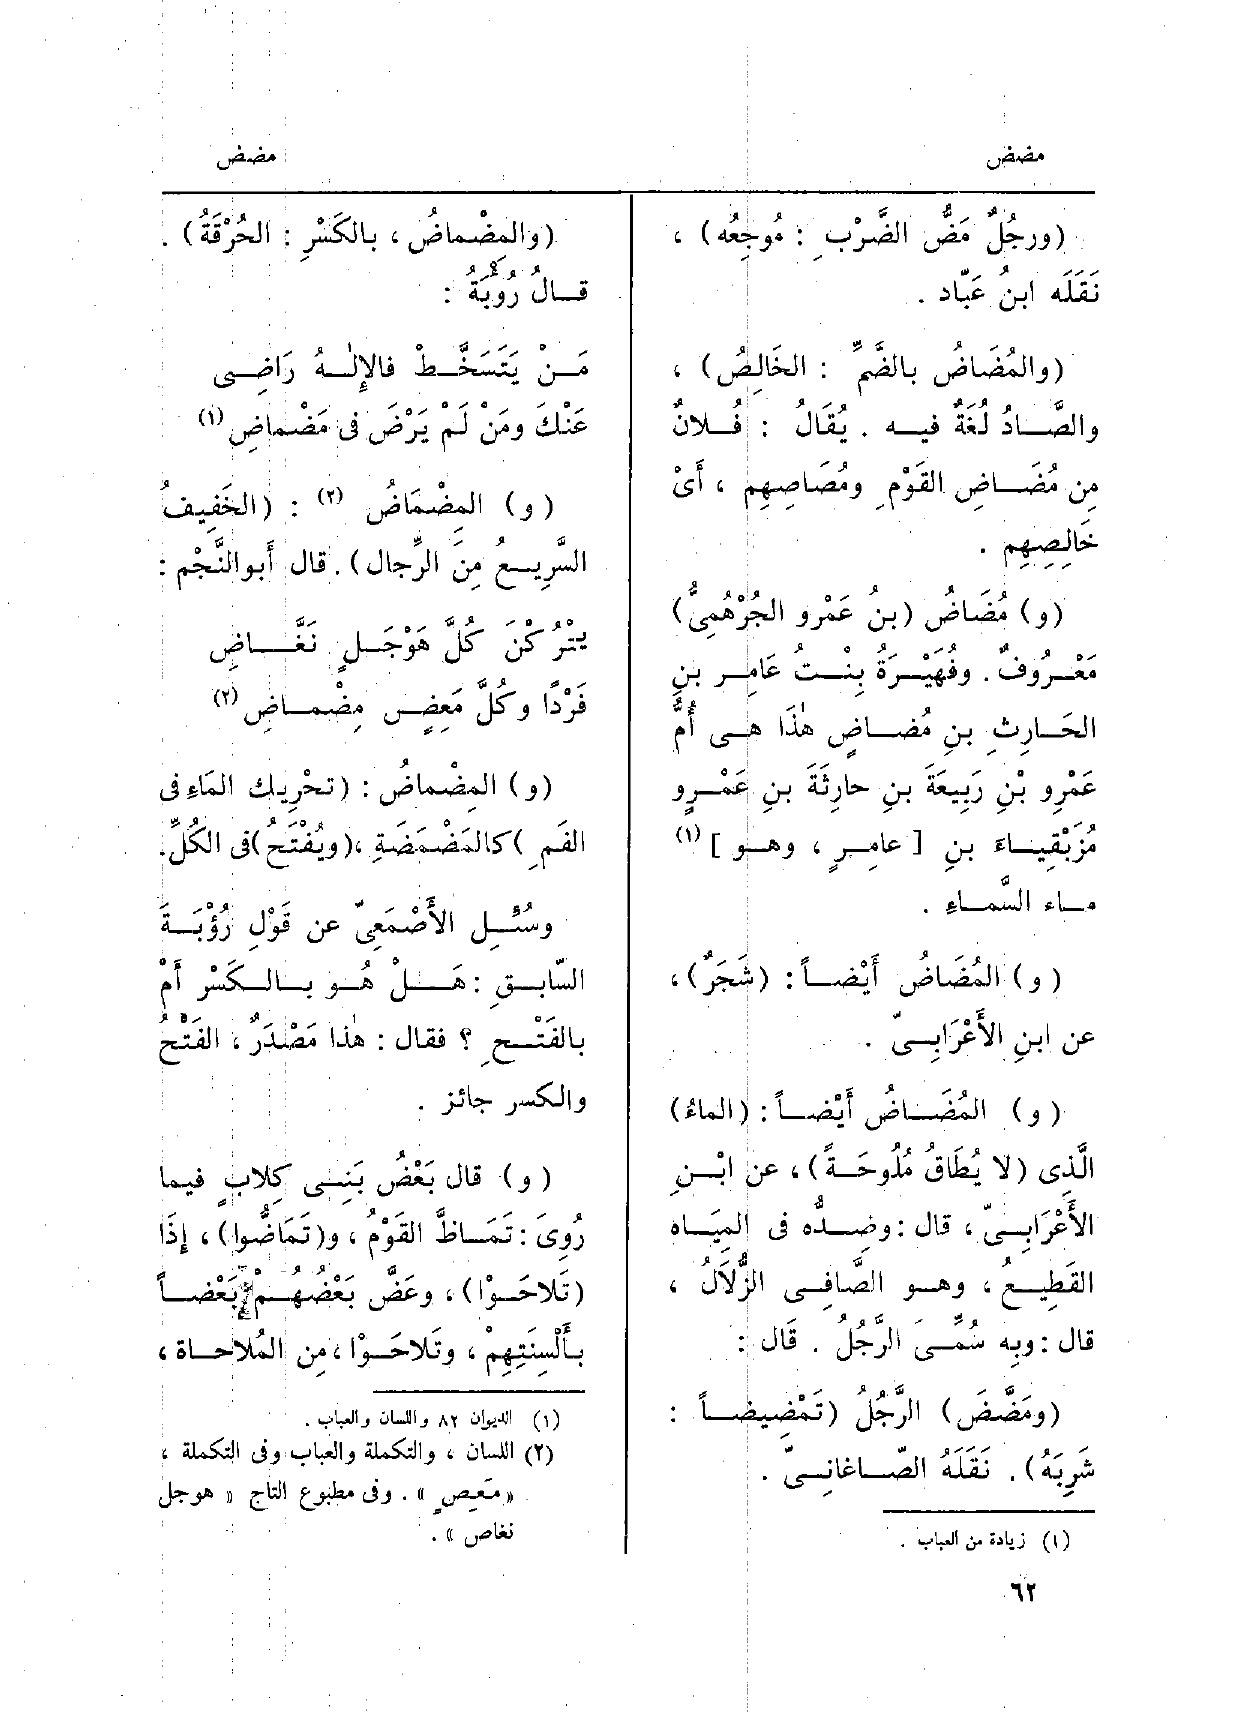 مضض
مضض
(ورجُلٌ مَضُّ الضَّرْبِ : مُوجِعُه) ،
نَقَلَه ابنُ عَبّاد .
(والمُضَاضُ بالضَّمِّ : الخَالِصُ) ،
والصَّادُ لُغَةٌ فيه . يُقَالُ : فُلانٌ
مِن مُضَاضِ القَوْمِ ومُصَاصِهِم ، أَىْ
خَالِصِهِم .
(و) مُضَاضُ (بنُ عَمْرو الجُرْهُمِىُّ)
مَعْرُوفٌ . وفُهَيْرَةُ بِنْتُ عَامِر بنِ
الحَارِثِ بنِ مُضَاضٍ هٰذَا هى أُمُّ
عَمْرِو بْنِ رَبِيعَةَ بنِ حارِثَةَ بنِ عَمْرٍو
مُزَيْقِيَاءَ بنِ [ عامِرٍ ، وهو ] (١)
ماء السَّماءِ .
(و) المُضَاضُ أَيْضاً : (شَجَرٌ) ،
عن ابنِ الأَعْرَابِىّ .
(و) المُضَاضُ أَيْضاً : (الماءُ)
الَّذى (لا يُطَاقُ مُلُوحَةً) ، عن ابْنِ
الأَعْرَابِىّ ، قال : وضِدُّه فى المِيَاه
القَطِيعُ ، وهو الصَّافِى الزُّلَالُ ،
قال : وبِه سُمِّىَ الرَّجُلُ . قَال :
(ومَضَّضَ) الرَّجُلُ (تَمْضِيضاً :
شَرِبَهُ) . نَقَلَهُ الصّاغانِىّ .
(١) زيادة من العباب .
(والمِضْماضُ ، بالكَسْرِ : الحُرْقَةُ) .
قالُ رُؤْبَةُ :
مَنْ يَتَسَخَّطْ فالإِلٰهُ رَاضِى
عَنْكَ ومَنْ لَمْ يَرْضَ فى مَضْماضِ (١)
(و) المِضْمَاضُ (٢) : (الخَفِيفُ
السَّرِيعُ مِنَ الرِّجال) . قال أَبوالنَّجْمِ :
يتْرُكْنَ كُلَّ هَوْجَلٍ نَغَّاضِ
فَرْدًا وكُلَّ مَعِضٍ مِضْماضِ (٢)
(و) المِضْماضُ : (تحْرِيك المَاءِ فى
الفَمِ) كالمَضْمَضَةِ ، (ويُفْتَحُ) فى الكُلِّ .
وسُئِل الأَصْمَعِىّ عن قَوْلِ رُؤْبَةَ
السّابِقِ : هَلْ هُو بالكَسْرِ أَمْ
بالفَتْحِ ؟ فقال : هٰذا مَصْدَرٌ ، الفَتْحُ
والكسر جائز .
(و) قال بَعْضُ بَنِى كِلابٍ فيما
رُوِىَ : تَمَاظَّ القَوْمُ ، و(تَمَاضُّوا) ، إِذَا
(تَلاحَوْا) ، وعَضَّ بَعْضُهُمْ بَعْضاً
بأَلْسِنَتِهِمْ ، وتَلاحَوْا ، مِن المُلَاحاة ،
(١) الديوان ٨٢ واللسان والعباب .
(٢) اللسان ، والتكملة والعباب وفى التكملة ،
« مَعِيصٍ » . وفى مطبوع التاج « هوجل
نغاص » .
٦٢